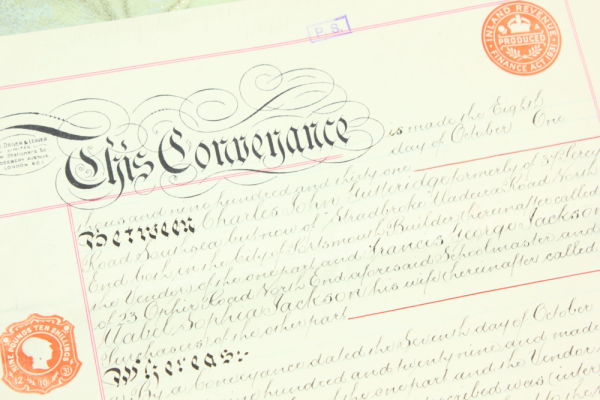 P.S.
INLAND REVENUE
PRODUCED
FINANCE ACT 1931
LIMITED
LONDON
This Conveyance is made the Eighth
day of October One
thousand nine hundred and thirty one
Between Charles John Gutteridge formerly of 37 Percy
Road Southsea but now of "Bradbroke" Madeira Road North
End both in the City of Portsmouth Builder (hereinafter called
the Vendor) of the one part and Francis George Jackson
of 23 Ophir Road North End aforesaid Schoolmaster and
Mabel Sophia Jackson his wife (hereinafter called
the Purchasers) of the other part
Whereas:-
By a Conveyance dated the Seventh day of October
One thousand nine hundred and twenty nine and made
of the one part and the Vendor
described was (inter
NINE POUNDS TEN SHILLINGS
12 10